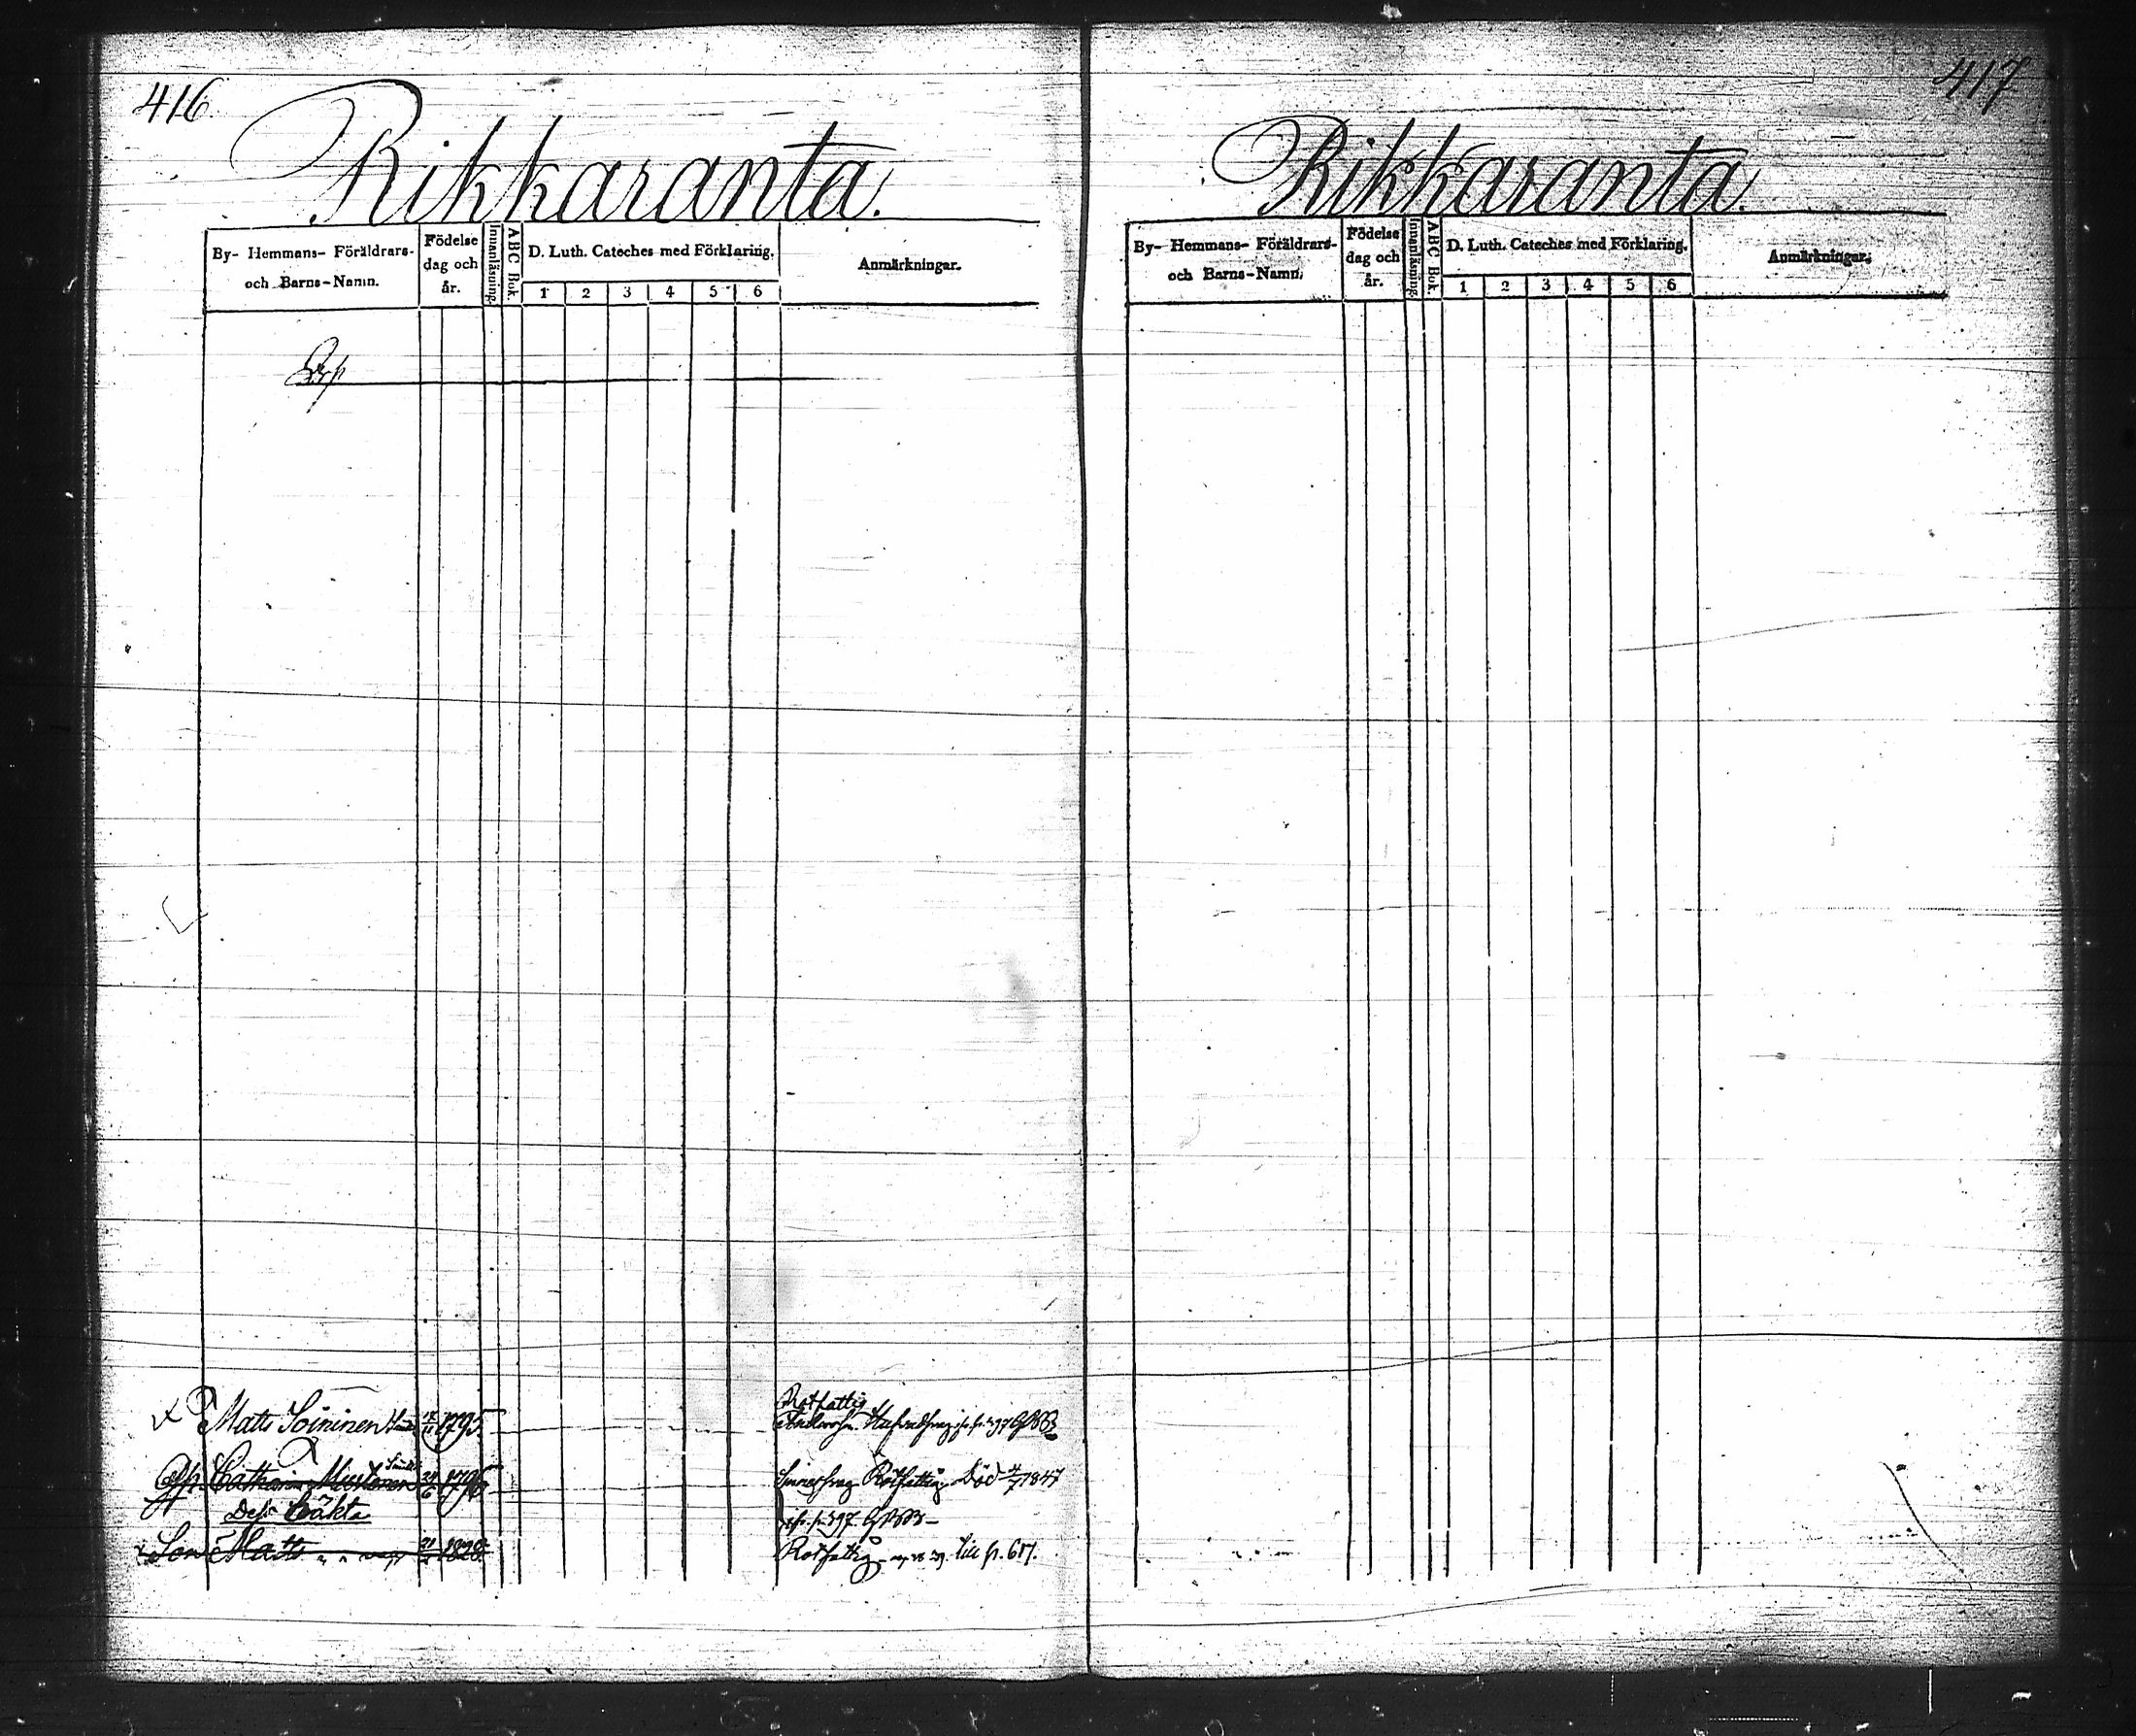 416.
Rikkaranta.
By- Hemmans- Föräldrars-
och Barns-Namn.
Födelse
dag och
år.
Innanläsning.
ABC Bok.
D. Luth. Cateches med Förklaring.
1 2 3 4 5 6
Anmärkningar.
Rotfattig
Matts Soininen 1795
Cathar. Mustonen 24/6 1796 Rotfattig Död 1847
Dess Oäkta p. 397.
Son Matts 1828 Rotfattig till p. 617.
417
Rikkaranta.
By- Hemmans- Föräldrars-
och Barns-Namn.
Födelse
dag och
år.
Innanläsning.
ABC Bok.
D. Luth. Cateches med Förklaring.
1 2 3 4 5 6
Anmärkningar.